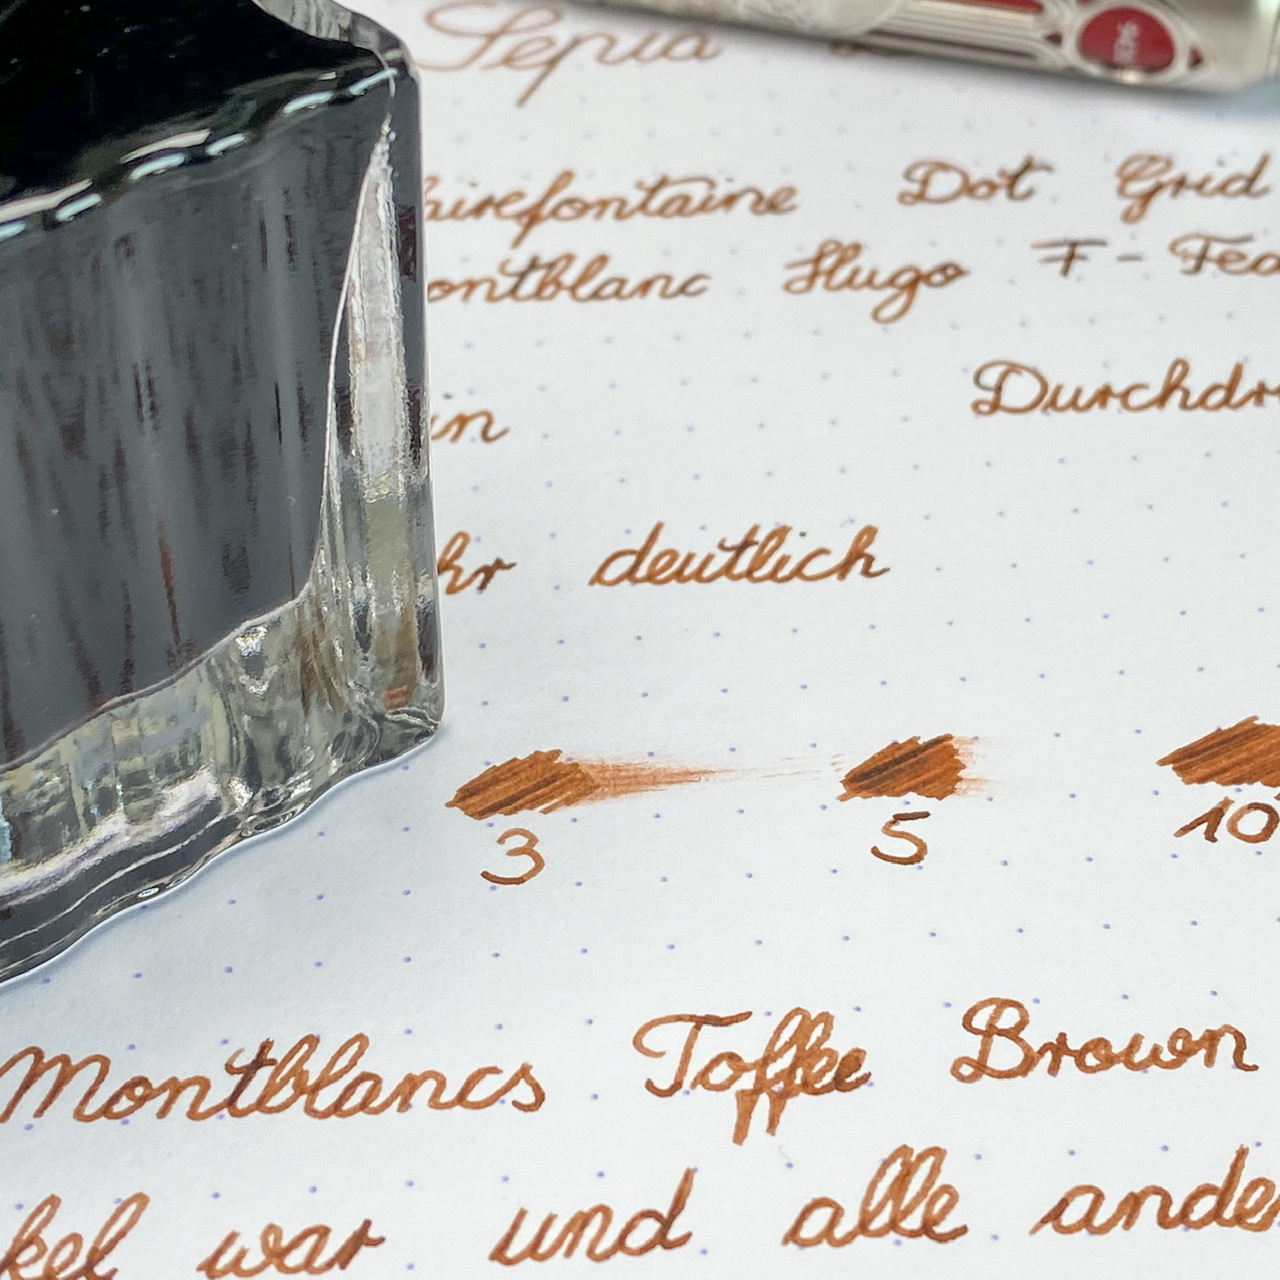 Sepia
airefontaine Dot Grid
ontblanc Hugo F - Fed
in Durchdr
hr deutlich
3 5 10
Montblancs Toffee Brown
kel war und alle ande